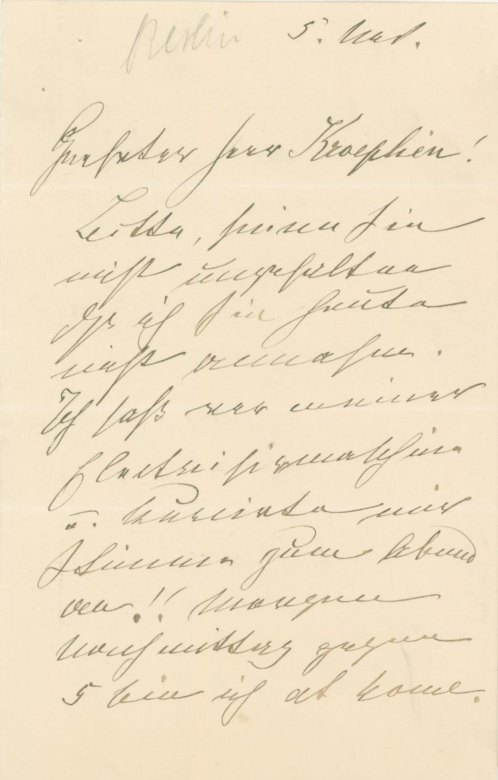 Berlin 5. Nov.
Geehrter Herr Kroeplien!
Bitte, seien Sie
nicht ungehalten
daß ich Sie heute
nicht annahm.
Ich saß vor meiner
Electrisirmaschine
u. kurierte mir
Stimme zum Abend
an!! Morgen
Nachmittag gegen
5 bin ich at home.